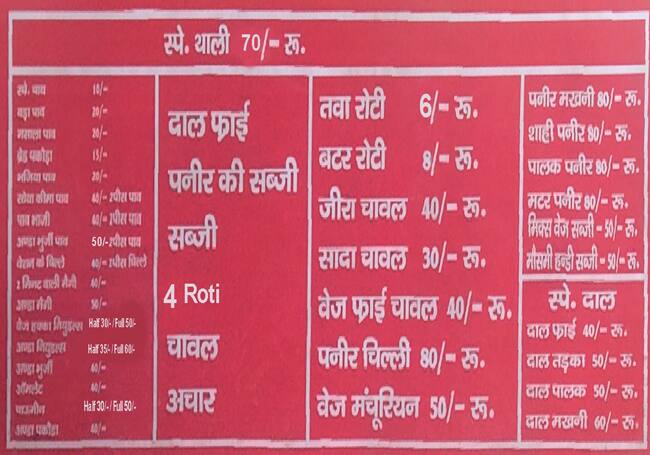 स्पे. थाली 70/- रू.
स्पे. चाय 10/-
वड़ा पाव 20/-
मसाला पाव 20/-
ब्रेड पकौड़ा 15/-
भजिया पाव 20/-
सोया कीमा पाव 40/- 2पीस पाव
पाव भाजी 40/- 2पीस पाव
अण्डा भुर्जी पाव 50/- 2पीस पाव
बेसन के चिल्ले 40/- 2पीस चिल्ले
2 मिनट वाली मैगी 40/-
अण्डा मैगी 50/-
वेज हक्का नियुडल्स Half 30/- / Full 50/-
अण्डा नियुडल्स Half 35/- / Full 60/-
अण्डा भुर्जी 40/-
ऑमलेट 40/-
चाउमीन Half 30/- / Full 50/-
अण्डा पकौड़ा 40/-
दाल फ्राई
पनीर की सब्जी
सब्जी
4 Roti
चावल
अचार
तवा रोटी 6/- रू.
बटर रोटी 8/- रू.
जीरा चावल 40/- रू.
सादा चावल 30/- रू.
वेज फ्राई चावल 40/- रू.
पनीर चिल्ली 80/- रू.
वेज मंचूरियन 50/- रू.
पनीर मखनी 80/- रू.
शाही पनीर 80/- रू.
पालक पनीर 80/- रू.
मटर पनीर 80/- रू.
मिक्स वेज सब्जी - 50/- रू.
मौसमी हन्डी सब्जी - 50/- रू.
स्पे. दाल
दाल फ्राई 40/- रू.
दाल तड़का 50/- रू.
दाल पालक 50/- रू.
दाल मखनी 60/- रू.